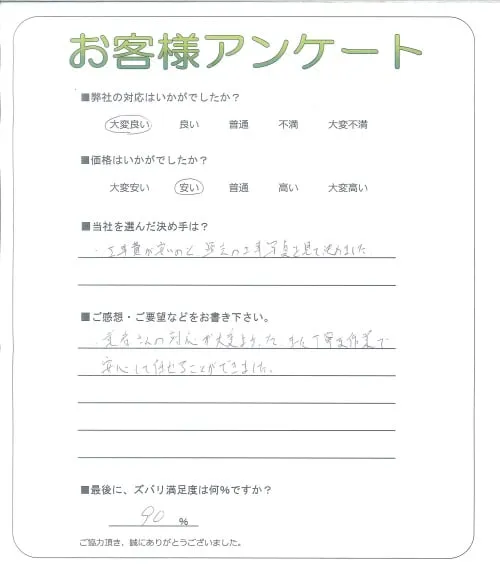 お客様アンケート
■弊社の対応はいかがでしたか？
大変良い 良い 普通 不満 大変不満
■価格はいかがでしたか？
大変安い 安い 普通 高い 大変高い
■当社を選んだ決め手は？
・工事費が安いのと 過去の工事写真を見て決めました
■ご感想・ご要望などをお書き下さい。
業者さんの対応が大変よかった また丁寧な作業で
安心して任せることができました。
■最後に、ズバリ満足度は何%ですか？
90 %
ご協力頂き、誠にありがとうございました。